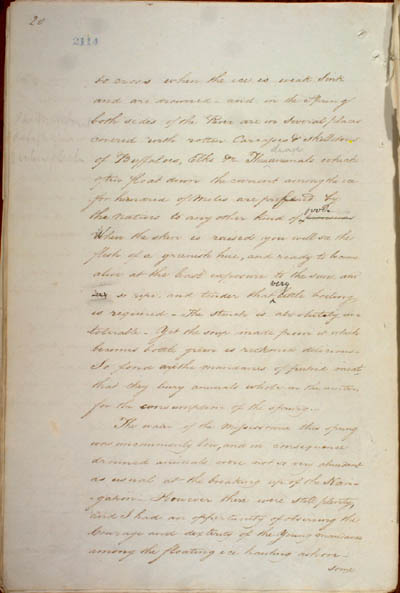 20
2114
to cross when the ice is weak Sink
and are drowned - and in the Spring
both sides of the River are in Several places
covered with rotten Carcases & skeletons
of Buffaloes, Elks &c These dead animals which
often float down the current among the ice
for hundred of Miles are preferred by
the Natives to any other kind of food.
When the skin is raised you will see the
flesh of a greenish hue, and ready to become
alive at the least exposure to the sun and
so ripe, and tender that very little boiling
is required - The stench is absolutely in
tolerable - Yet the soup made from it which
becomes bottle green is reckoned delicious -
So fond are the mandanes of putrid meat
that they bury animals whole in the winter
for the consumption of the spring -
The water of the Missisourie this spring
was uncommonly low, and in consequence
drowned animals were not so very abundant
as usual at the breaking up of the Navi-
-gation - However there were still plenty,
and I had an opportunity of observing the
Courage and dexterity of the Young mandanes
among the floating ice hauling ashore
some